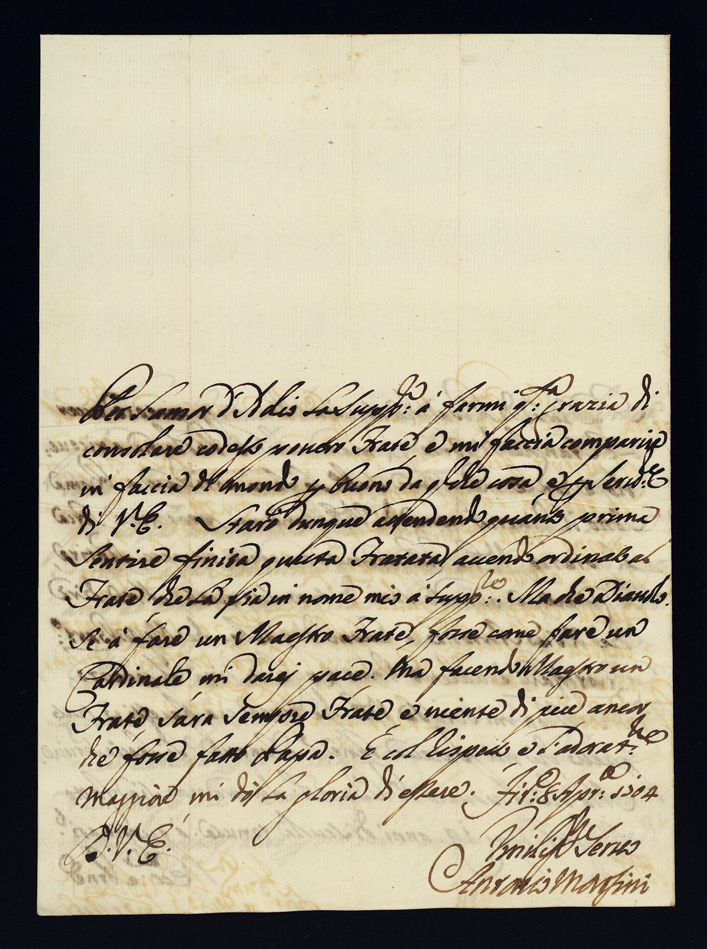 Per l'amor d'Idio la supp.co à farmi q.ta grazia di
consolare codesto povero Frate e mi faccia comparire
in faccia al mondo p buono da q.lche cosa e p serv.e
di V.E. Starò dunque attendendo quanto prima
sentire finita questa Fratata avendo ordinato al
Frate che la sia in nome mio à supp.re. Ma che Diavolo.
Se à fare un Maestro Frate, fosse come fare un
Cardinale mi darej pace. Ma facendo Maestro un
Frate sarà sempre Frate e niente di più ancor
che fosse fatto Papa. E col rispetto e
maggiore mi dò la gloria di essere. Fir.e 8 Apr.e 1704
D.V.E.
Servo
Antonio Morosini